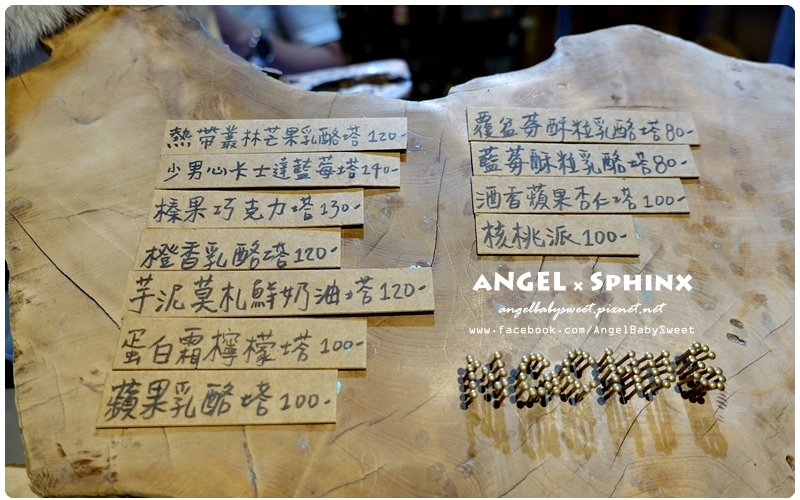 熱帶叢林芒果乳酪塔120-
少男心卡士達藍莓塔140-
榛果巧克力塔130-
橙香乳酪塔120-
芋泥莫札鮮奶油塔120-
蛋白霜檸檬塔100-
蘋果乳酪塔100-
覆盆莓酥粒乳酪塔80-
藍莓酥粒乳酪塔80-
酒香蘋果杏仁塔100-
核桃派100-
ANGEL x SPHINX
angelbabysweet.pixnet.net
www.facebook.com/AngelBabySweet